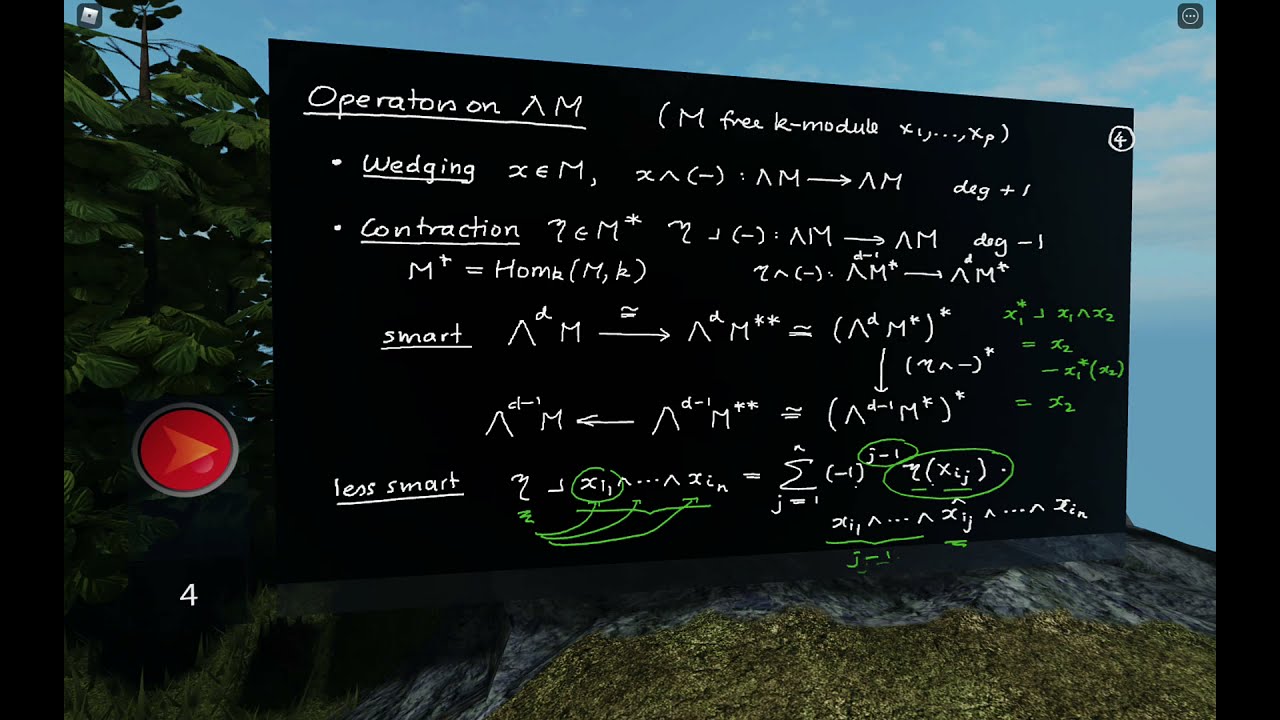 Operators on ΛM (M free k-module x₁,...,xₚ)
④
• Wedging x ∈ M, x ∧ (−) : ΛM → ΛM deg +1
• Contraction η ∈ M* η ⌟ (−) : ΛM → ΛM deg −1
M* = Homₖ(M, k) η ∧ (−) : Λᵈ⁻¹M* → ΛᵈM*
smart ΛᵈM ≅→ ΛᵈM** ≅ (ΛᵈM*)*
↓ (η ∧ −)*
Λᵈ⁻¹M ← Λᵈ⁻¹M** ≅ (Λᵈ⁻¹M*)*
x₁* ⌟ x₁ ∧ x₂
= x₂
− x₁*(x₂)
= x₂
less smart η ⌟ x_{i₁} ∧ ⋯ ∧ x_{iₙ} = Σ_{j=1}^{n} (−1)^{j−1} η(x_{i_j}) ·
x_{i₁} ∧ ⋯ ∧ x̂_{i_j} ∧ ⋯ ∧ x_{iₙ}
j−1
4